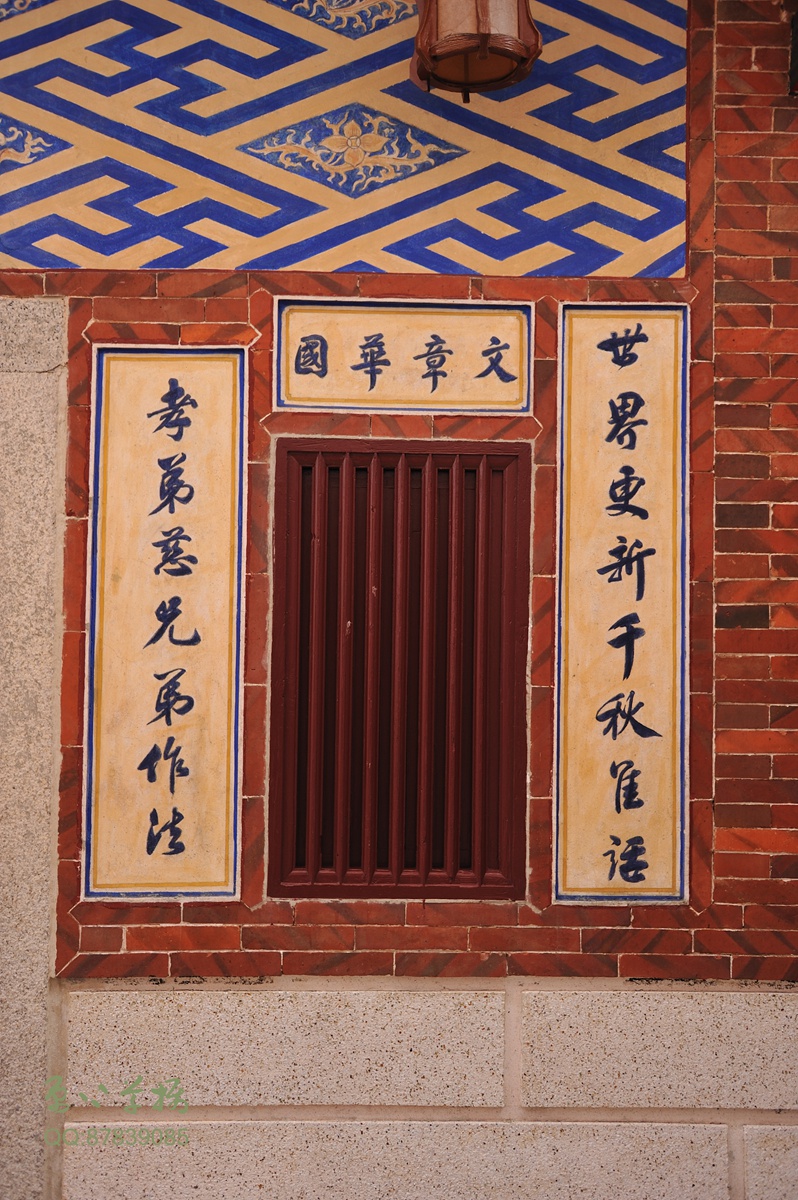 文章華國
世界更新千秋佳話
孝弟慈兄弟作法